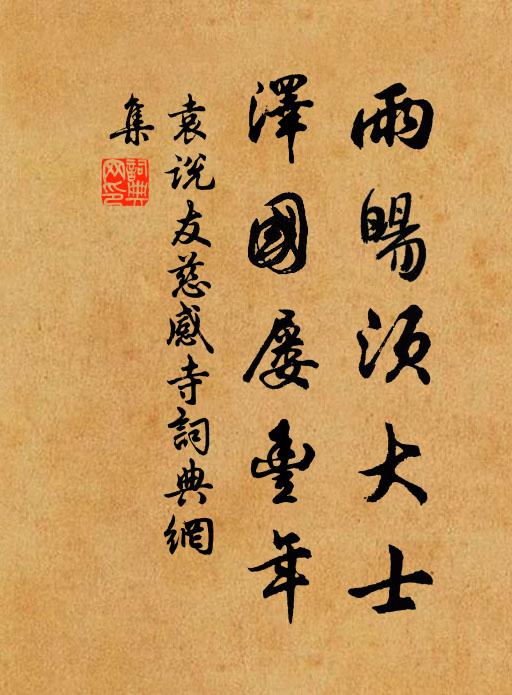 雨暘須大士
澤國屡豐年
袁說友慈感寺詞典網
集
詞典網印